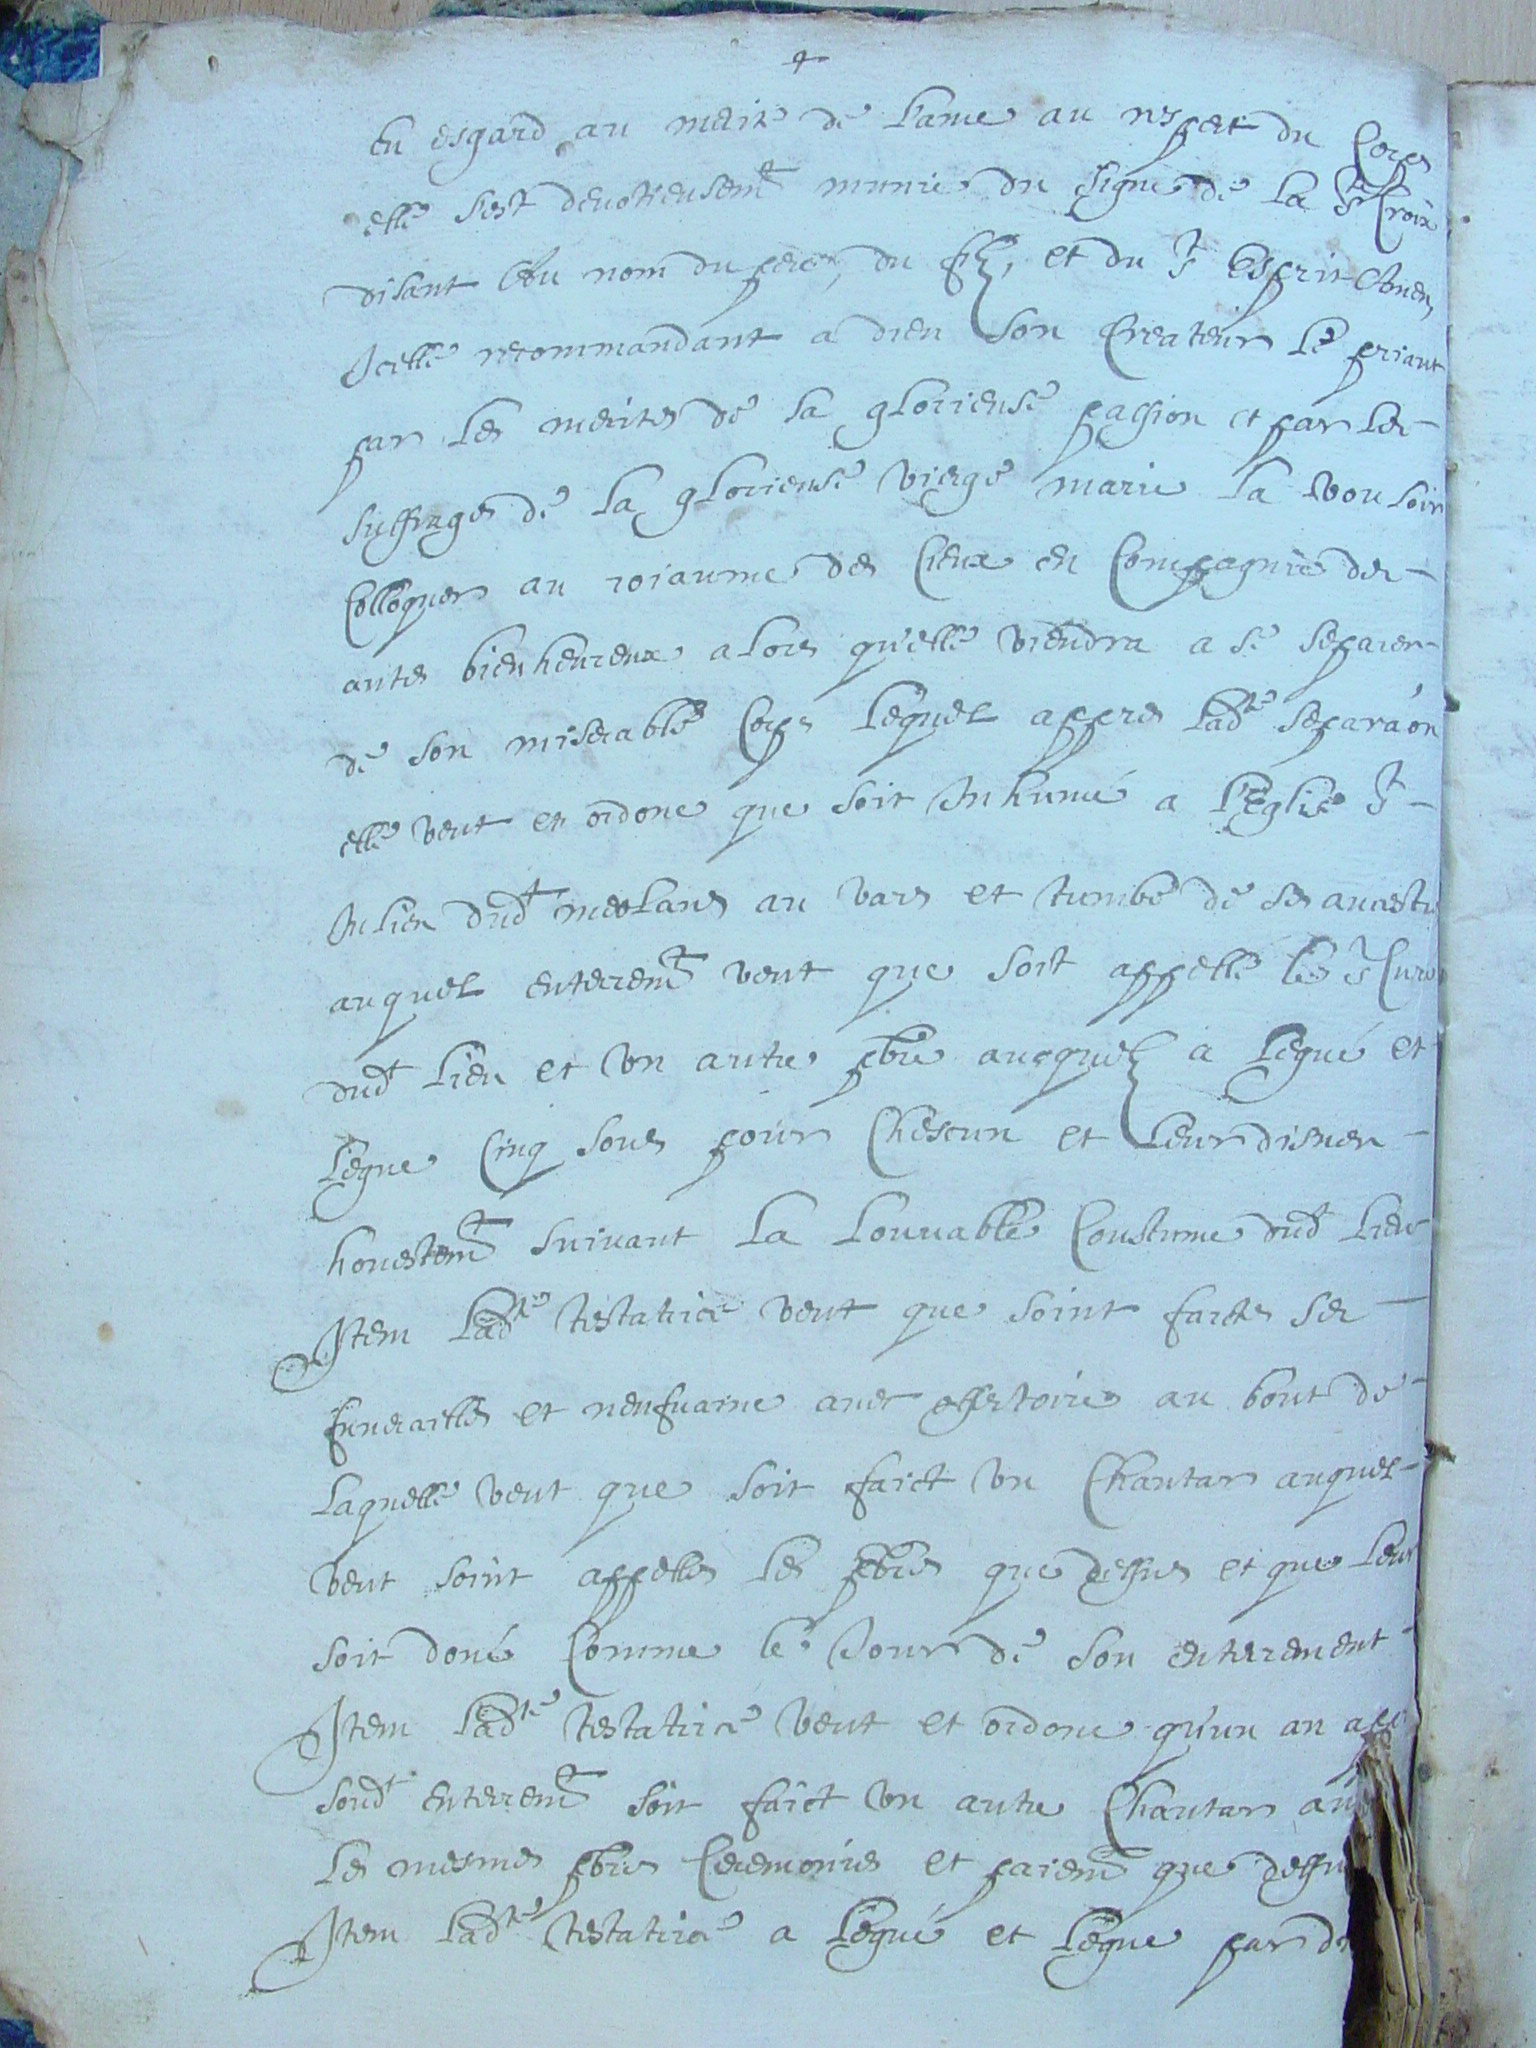 +
eu esgard au merite de l'ame au respect du Corps
elle s'est devotieusemt munie du signe de la Ste Croix
disant Au nom du pere, du filz, et du St Esprit Amen,
Icelle recommandant a dieu son Createur le priant
par les merites de sa glorieuse passion et par les
suffrages de la glorieuse vierge marie la vouloir
Colloquer au roiaume des Cieux en Compagnie des
autes bienheureux alors qu'elle viendra a se separer
de son miserable Corps lequel appres ladte separaon
elle veut et ordone que soit Inhumé a l'Eglise St
Julien dudt meolans au vars et tumbe de ses ancestr
auquel enterremt veut que soit appellé le sr Curé
dudt lieu et un autre pbre ausquelz a legué et
legue Cinq sous pour Chescun et leur disner
honestemt suivant la louuable Coustume dudt lieu
Item ladte testatrice veut que soint faictes ses
funerailles et neufuaine avec offertoire au bout de
laquelle veut que soit faict un Chantar auquel
veut soint appelles les pbres que dessus et que leur
soit doné Comme le Jour de son enterement
Item ladte testatrice veut et ordone qu'un an app
sondt enterremt soit faict un autre Chantar au
les mesmes pbres Ceremonies et paiemt que dessu
Item ladte testatrice a legué et legue par d